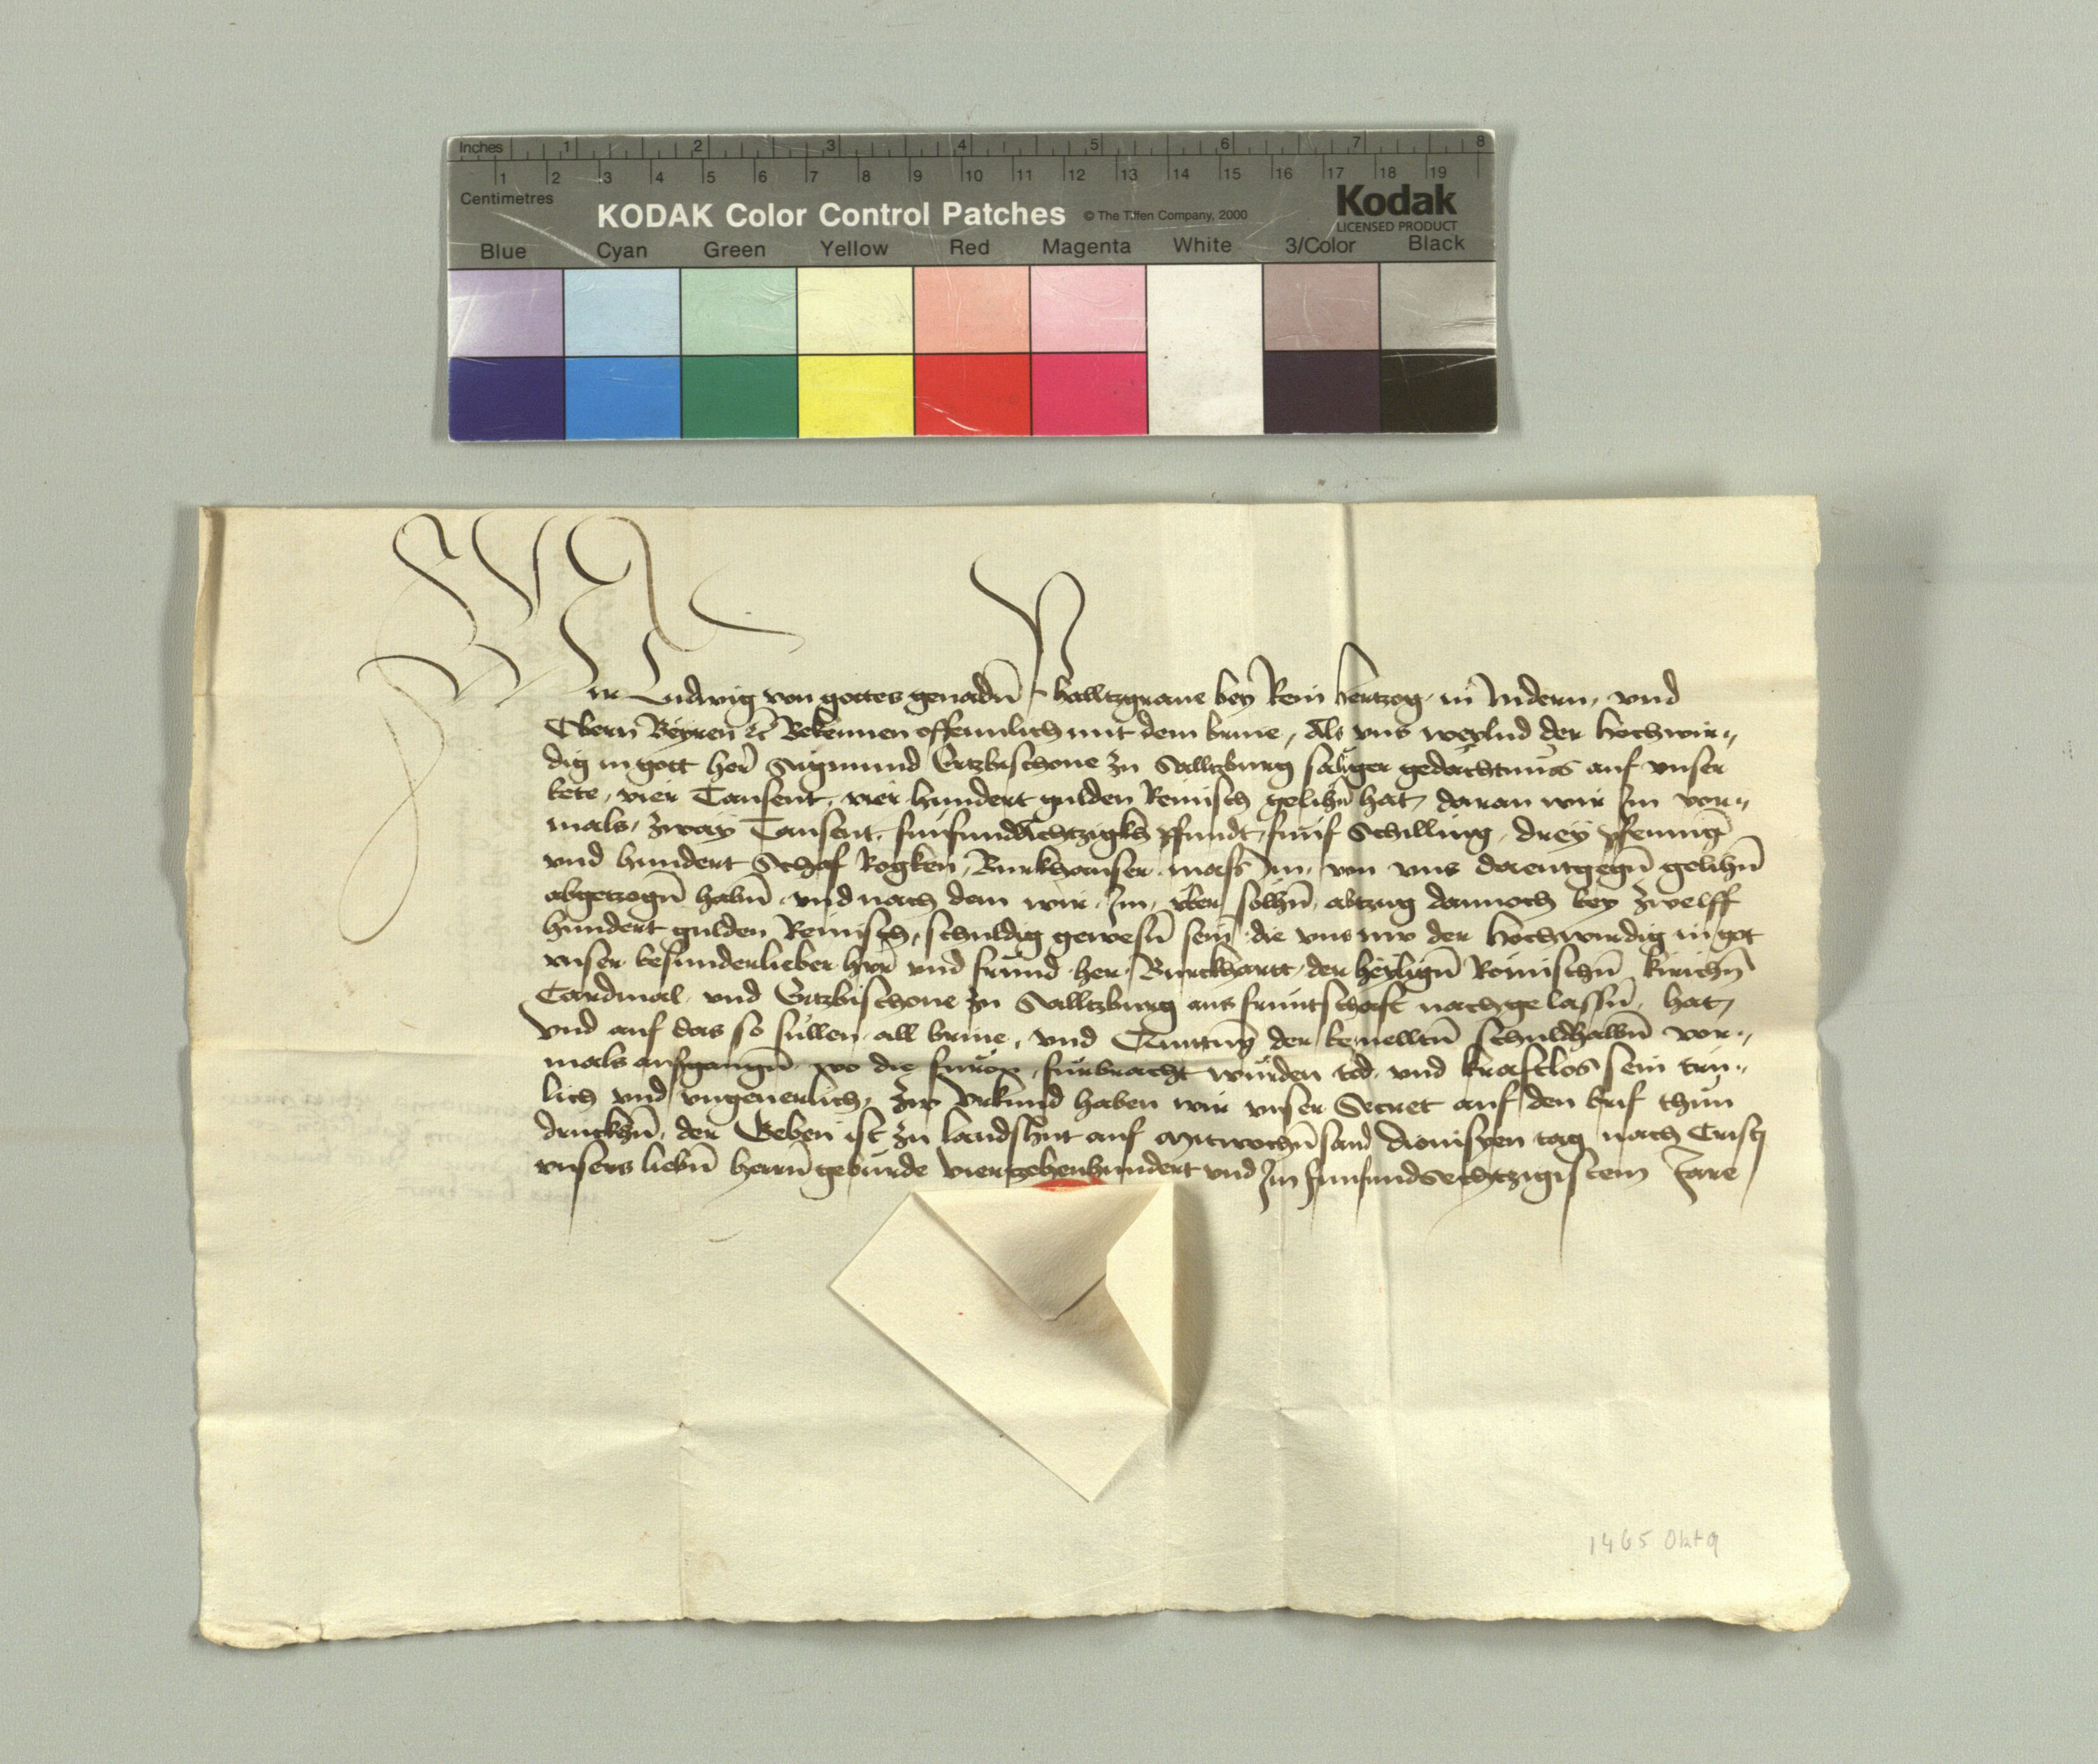 Inches 1 2 3 4 5 6 7 8
1 2 3 4 5 6 7 8 9 10 11 12 13 14 15 16 17 18 19
Centimetres
KODAK Color Control Patches © The Tiffen Company, 2000 Kodak
LICENSED PRODUCT
Blue Cyan Green Yellow Red Magenta White 3/Color Black
Wir Ludwig von gottes genadn̄ Phalltzgraue bey Rein hertzog in Nidern, vnd
Obern Beyren ꝛc̄ Bekennen offennlich mit dem briue, Als vns weylnd der hochwir„
dig in gott her Sigmund Ertzbischoue zu Salltzburg säliger gedächtnüss auf vnser
bete, vier Tausent, vier hundert gulden Reinisch gelihn̄ hat, daran wir Im vor„
mals, zway Tausent, fünfundachtzigk pfundt, fünf Schilling, drey pfening
vnd hundert Schaf Rogken, Burkhauser mass Im, von vns daentgegn̄ gelihn̄
abgetzogn̄ habn̄, vnd nach dem wir, Im, vber solhn̄, abtzug dannoch bey zwelff
hundert gulden Reinisch, schuldig gewesn̄ sein die vns nw der Hochwirdig in got
vnser besunderlieber herr vnd fründ her Burckhartt, der heylign̄ Römischn̄ kirichn̄
Cardinal, vnd Ertzbischoue zu Salltzburg aus früntschaft nachgelassn̄, hat,
Vnd auf das so süllen, all briue, vnd Quittung der bemelltn̄ schuldhalbn̄ vor„
mals ausgangn̄ wo die fürbracht würden tod, vnd kraftlos sein trü„
lich vnd vngeuerlich, Zw Vrkund haben wir vnser Secret auf den brif thün
druckhn̄, der Geben ist zu landshut auf Mitwochn̄ sand Dionisyen tag nach Cristi
vnsers liebn̄ herrn̄ gebürde viertzehenhundert vnd Im fünfundsechtzigistem Jare
1465 Okt 9